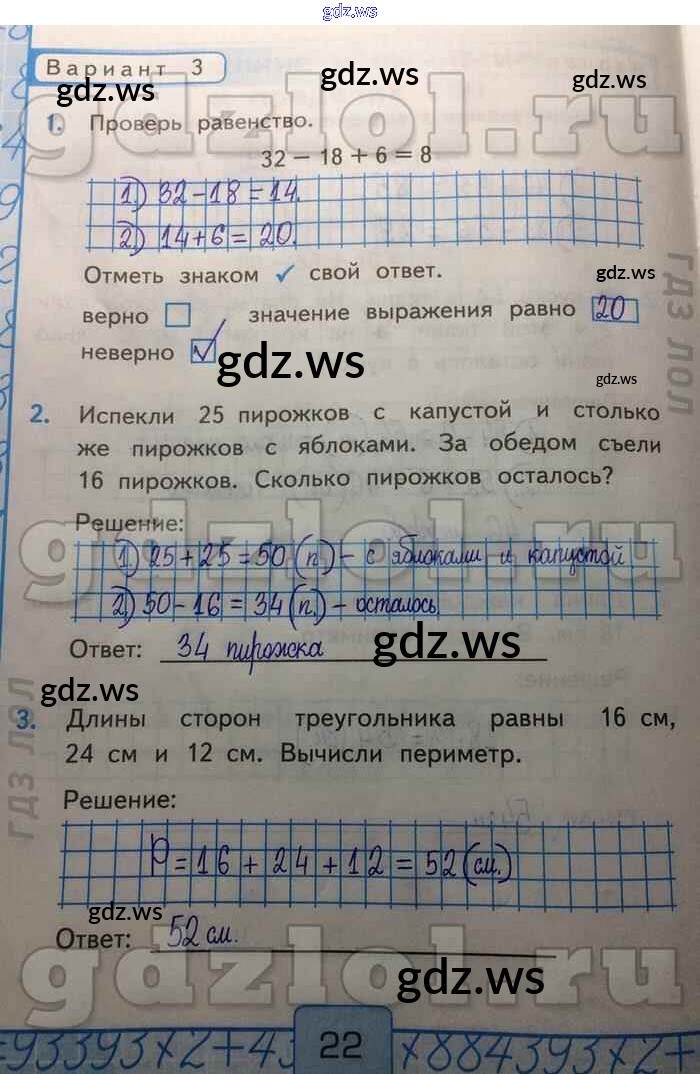 gdz.ws
Вариант 3
gdz.ws
gdz.ws
gdzlol.ru
1. Проверь равенство.
32 − 18 + 6 = 8
1) 32-18=14.
2) 14+6=20.
gdz.ws
Отметь знаком ✓ свой ответ.
верно значение выражения равно 20
неверно ✓
gdz.ws
гдз лол
gdz.ws
2. Испекли 25 пирожков с капустой и столько
же пирожков с яблоками. За обедом съели
16 пирожков. Сколько пирожков осталось?
Решение:
gdzlol.ru
1) 25+25=50(п.)-с яблоками и капустой
2) 50-16=34(п.)-осталось
Ответ: 34 пирожка
gdz.ws
gdz.ws
гдз лол
3. Длины сторон треугольника равны 16 см,
24 см и 12 см. Вычисли периметр.
Решение:
P=16+24+12=52(см.)
gdz.ws
Ответ: 52 см.
gdzlol.ru
gdz.ws
=93393×2+43 22 ×884393×2+